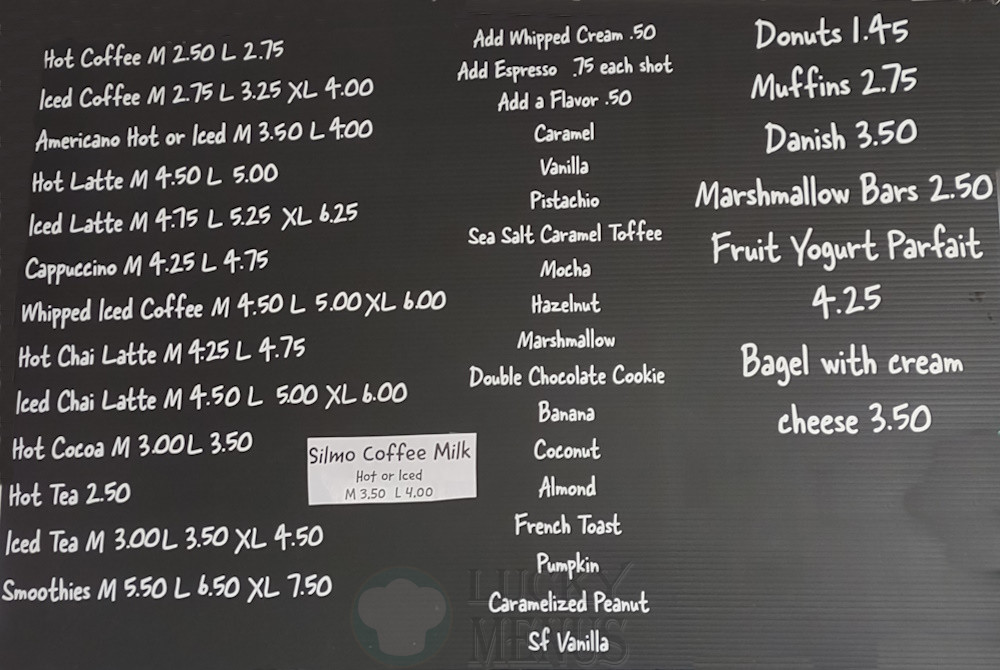 Hot Coffee M 2.50 L 2.75
Iced Coffee M 2.75 L 3.25 XL 4.00
Americano Hot or Iced M 3.50 L 4.00
Hot Latte M 4.50 L 5.00
Iced Latte M 4.75 L 5.25 XL 6.25
Cappuccino M 4.25 L 4.75
Whipped Iced Coffee M 4.50 L 5.00 XL 6.00
Hot Chai Latte M 4.25 L 4.75
Iced Chai Latte M 4.50 L 5.00 XL 6.00
Hot Cocoa M 3.00 L 3.50
Hot Tea 2.50
Iced Tea M 3.00 L 3.50 XL 4.50
Smoothies M 5.50 L 6.50 XL 7.50
Silmo Coffee Milk
Hot or Iced
M 3.50 L 4.00
Add Whipped Cream .50
Add Espresso .75 each shot
Add a Flavor .50
Caramel
Vanilla
Pistachio
Sea Salt Caramel Toffee
Mocha
Hazelnut
Marshmallow
Double Chocolate Cookie
Banana
Coconut
Almond
French Toast
Pumpkin
Caramelized Peanut
Sf Vanilla
Donuts 1.45
Muffins 2.75
Danish 3.50
Marshmallow Bars 2.50
Fruit Yogurt Parfait
4.25
Bagel with cream
cheese 3.50
LUCKY
MENUS